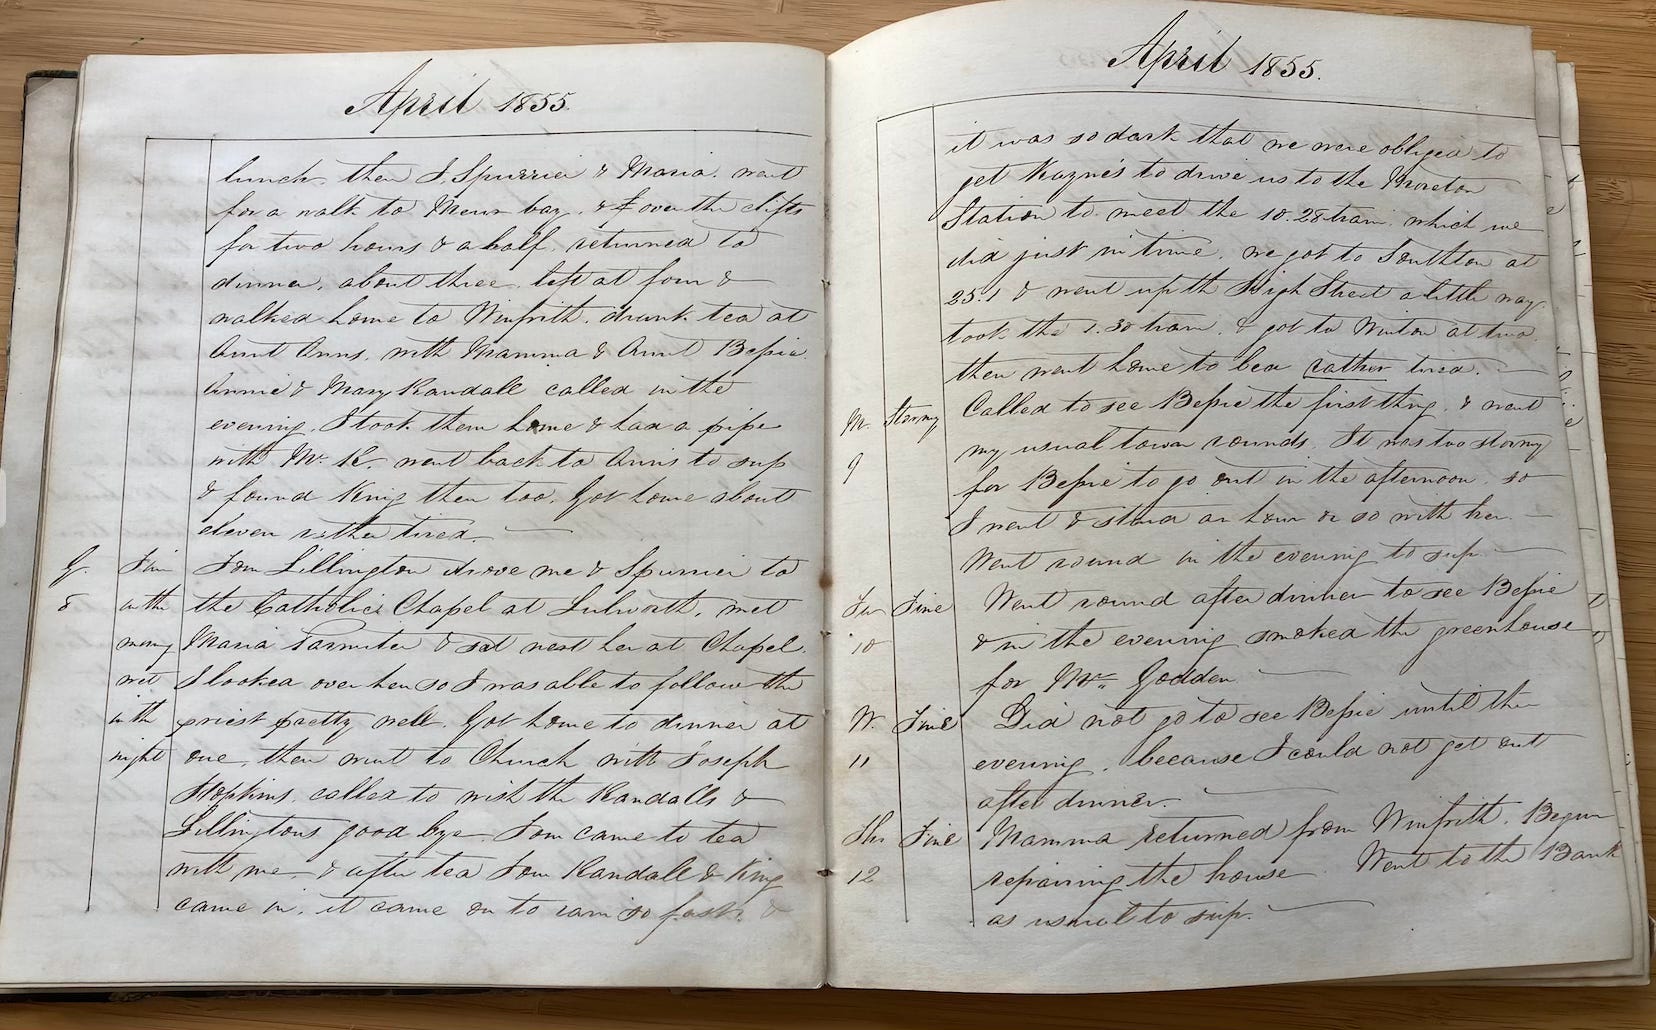 April 1855.
lunch. then J. Spurrier & Maria. went
for a walk to Mewr bay. & over the clifts
for two hours & a half. returned to
dinner, about three. left at four &
walked home to Winfrith. drunk tea at
Aunt Anns. with Mamma & Aunt Bessie.
Annie & Mary Randall called in the
evening. I took them home & had a pipe
with Mr. R. went back to Ann's to sup
& found King then too. Got home about
eleven rather tired.
G. Fine Tom Lillington drove me & Spurrier to
8 in the the Catholics Chapel at Lulworth. met
mornng Maria Parmiter & sat next her at Chapel.
wet I looked over hers so I was able to follow the
in the priest pretty well. Got home to dinner at
night one, then went to Church with Joseph
Hopkins. called to wish the Randalls &
Lillingtons good bye. Tom came to tea
with me & after tea Tom Randall & King
came in. it came on to rain so fast. &
April 1855.
it was so dark that we were obliged to
get to drive us to the Moreton
Station to meet the 10.28 train. which we
did just in time. we got to Southton at
25.1 & went up th High Street a little way.
took the 1.30 train. & got to Winton at two.
then went home to bed rather tired.
M. Stormy Called to see Bessie the first thng. & went
9 my usual town rounds. It was too stormy
for Bessie to go out in the afternoon. so
I went & staid an hour or so with her.
Went round in the evening to sup
Tu Fine Went round after dinner to see Bessie
10 & in the evening smoked the greenhouse
for Mrs. Godden
W. Fine Did not go to see Bessie until the
11 evening. because I could not get out
after dinner.
Ths Fine Mamma returned from Winfrith. Begun
12 repairing the house. Went to the Bank
as usual to sup.